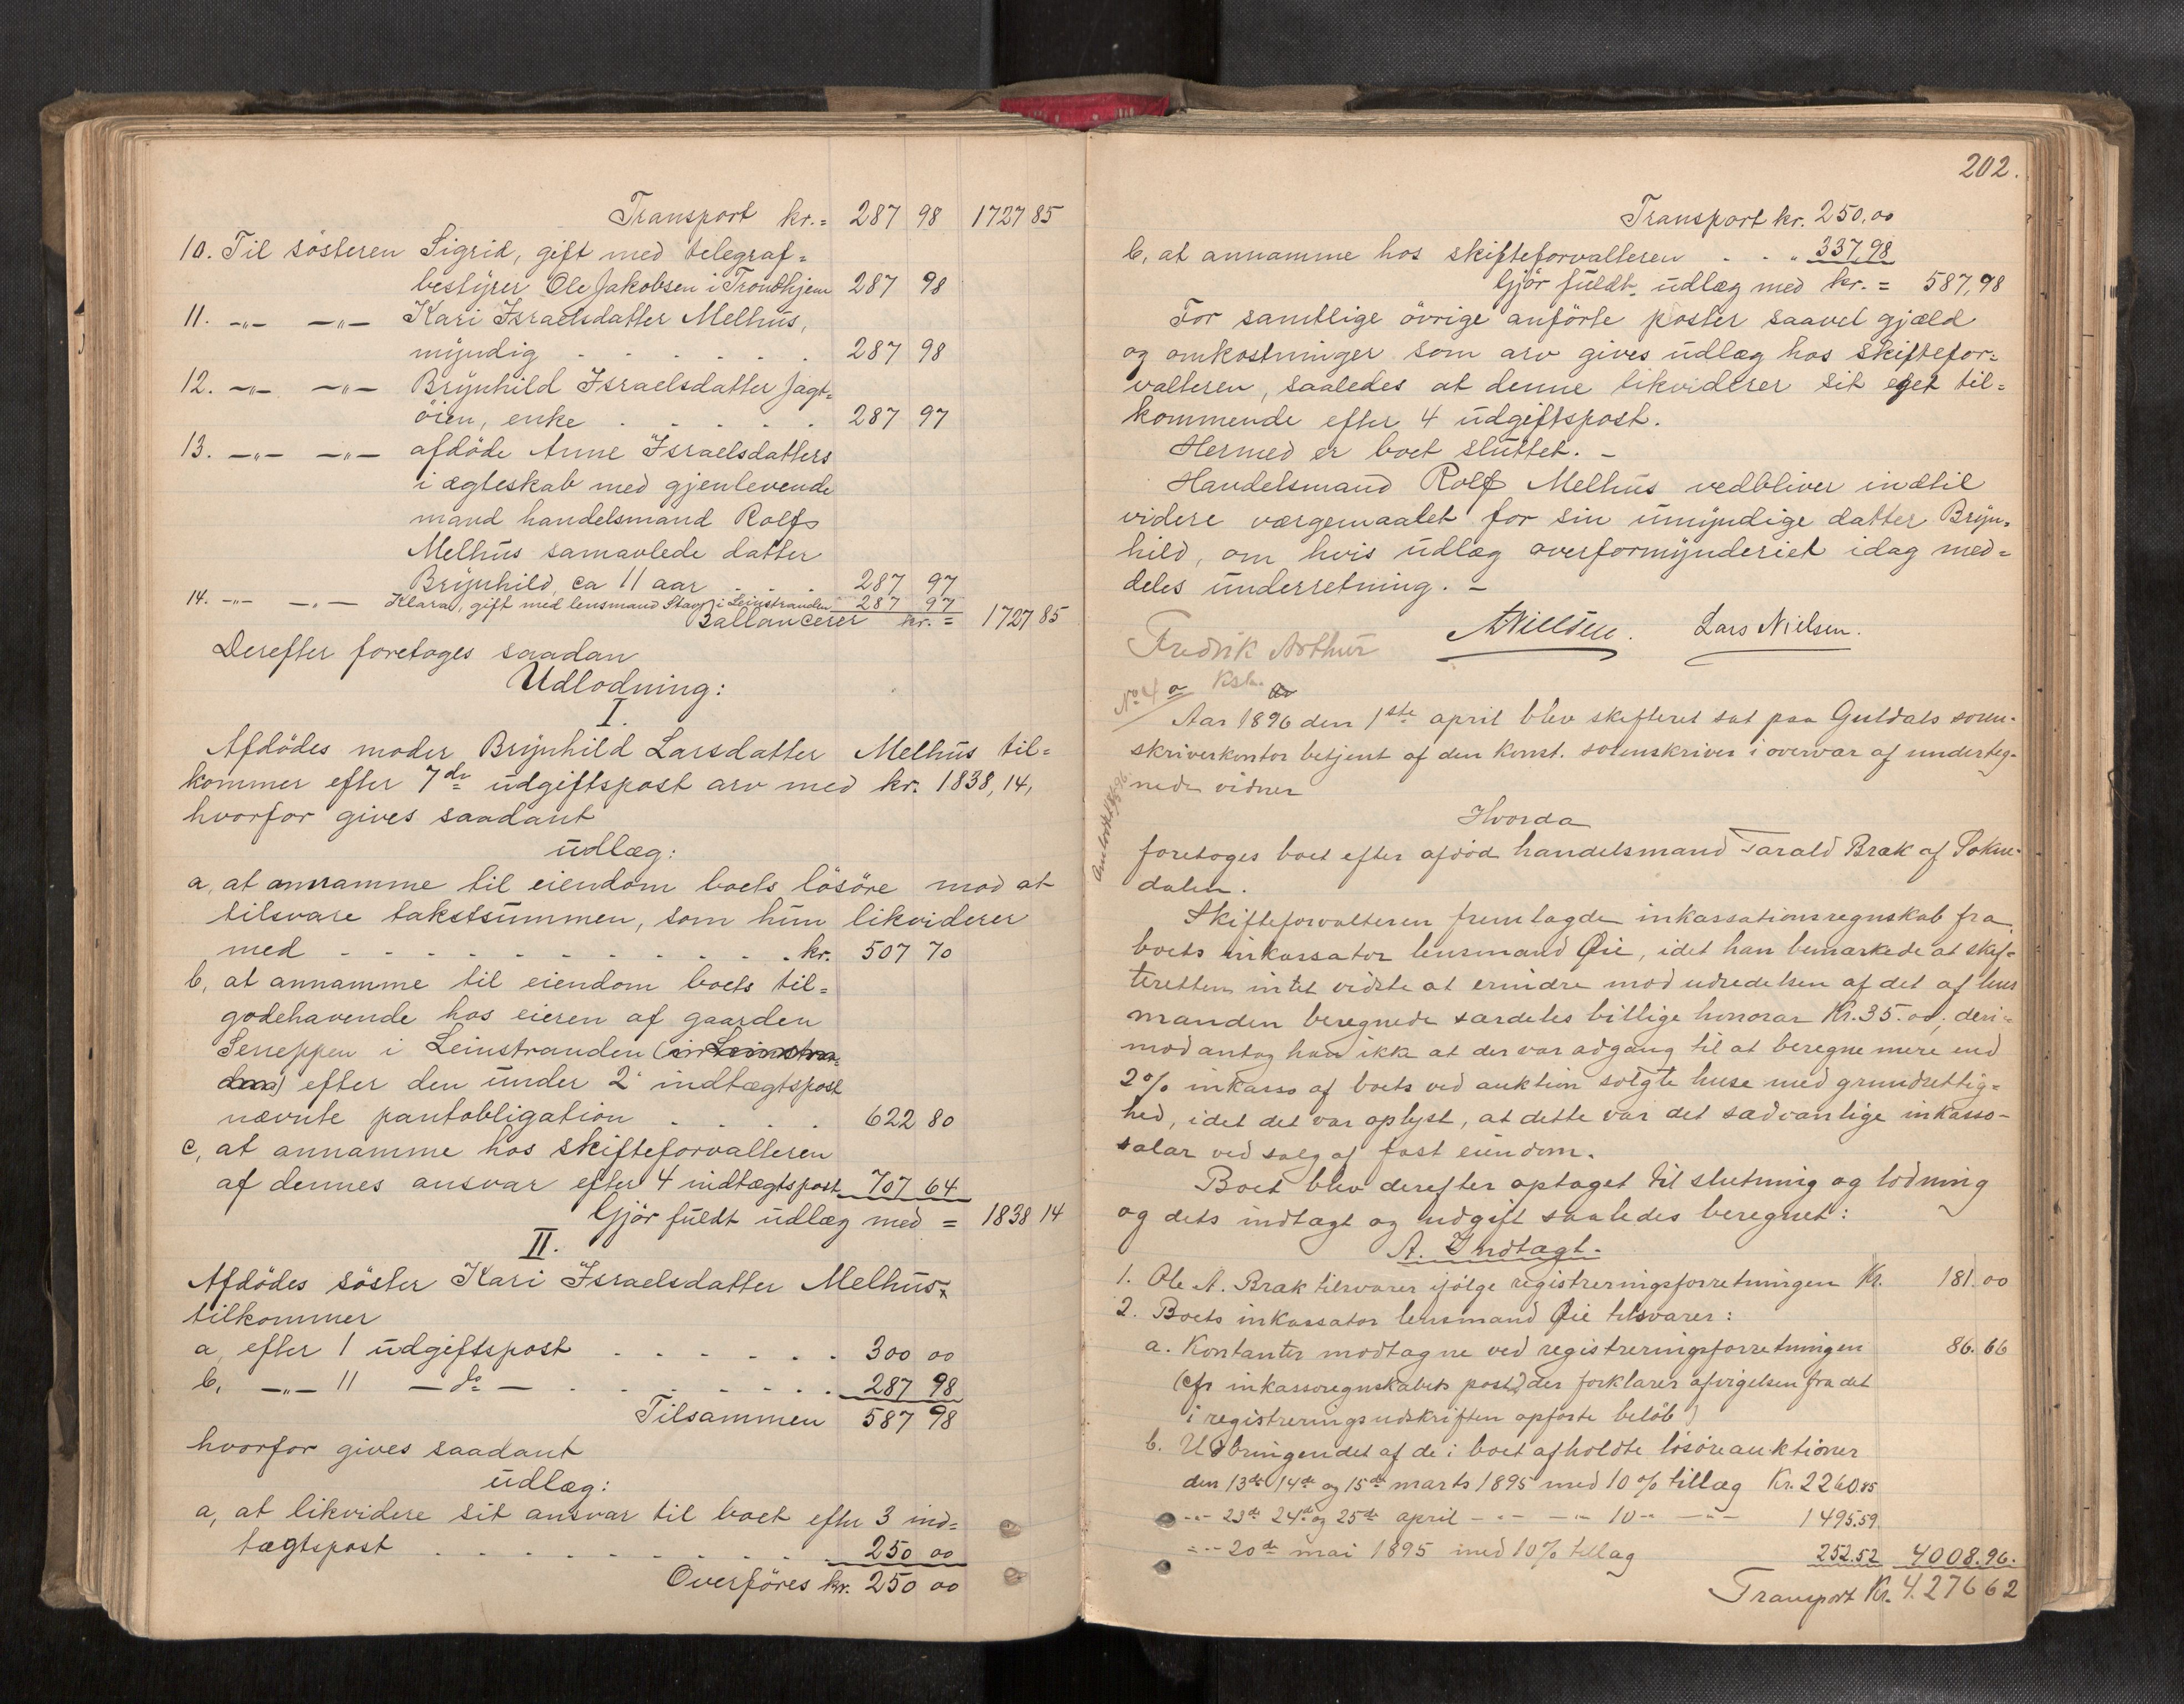 Transport kr. = 287 98 1727 85
10. Til sösteren Sigrid, gift med telegraf=
bestyrer Ole Jakobsen i Trondhjem 287 98
11. -„- -„- Kari Israelsdatter Melhus,
myndig . . . . . . 287 98
12. -„- -„- Brynhild Israelsdatter Jagt=
öien, enke . . . . . 287 97
13. -„- -„- afdöde Anne Israelsdatters
i ægteskab med gjenlevende
mand handelsmand Rolf
Melhus samavlede datter
Brynhild, ca 11 aar . . . . 287 97
14. -„- -„- Klara, gift med lensmand Stav i Leinstranden 287 97
Ballancerer kr. = 1727 85
Derefter foretages saadan
Udlodning:
I.
Afdödes moder Brynhild Larsdatter Melhus til=
kommer efter 7de udgiftspost arv med kr. 1838,14,
hvorfor gives saadant
udlæg:
a, at annamme til eiendom boets lösöre mod at
tilsvare takstsummen, som hun likviderer
med . . . . . . . . . . . kr. 507 70
b, at annamme til eiendom boets til=
godehavende hos eieren af gaarden
Seneppen i Leinstranden (i Leinstran=
den) efter den under 2' indtægtspost
nævnte pantobligation . . . . 622 80
c, at annamme hos skifteforvalteren
af dennes ansvar efter 4 indtægtspost 707 64
Gjör fuldt udlæg med = 1838 14
II.
Afdödes söster Kari Israelsdatter Melhus
tilkommer
a, efter 1 udgiftspost . . . . . . 300 00
b, -„- 11 - do - . . . . . . . 287 98
Tilsammen 587 98
hvorfor gives saadant
udlæg:
a, at likvidere sit ansvar til boet efter 3 ind=
tægtspost . . . . . . . . . 250 00
Overföres kr. 250 00
202.
Transport kr. 250,00
b, at annamme hos skifteforvalteren . . „ 337,98
Gjör fuldt udlæg med kr. = 587,98
For samtlige övrige anförte poster saavel gjæld
og omkostninger som arv gives udlæg hos skiftefor=
valteren, saaledes at denne likviderer sit eget til=
kommende efter 4 udgiftspost.
Hermed er boet sluttet. -
Handelsmand Rolf Melhus vedbliver indtil
videre værgemaalet for sin umyndige datter Bryn=
hild, om hvis udlæg overformynderiet idag med=
deles underretning. -
ANielsen. Lars Nielsen.
Fredrik Arthur
No 4 a
Aar 1896 den 1ste april blev skifteret sat paa Guldals soren-
skriverkontor betjent af den konst. sorenskriver i overvær af underteg-
nede vidner
Hvorda
foretoges boet efter afdöd handelsmand Tarald Bræk af Sokne-
dalen.
Skifteforvalteren fremlagde inkassationsregnskab fra
boets inkassator lensmand Øie, idet han bemærkede at skif=
teretten intet vidste at erindre mod udredelsen af det af lens
manden beregnede særdeles billige honorar Kr. 35.00, deri=
mod antog han ikke at der var adgang til at beregne mere end
2% inkasso af boets ved auktion solgte huse med grundrettig=
hed, idet det var oplyst, at dette var det sædvanlige inkasso-
salær ved salg af fast eiendom.
Boet blev derefter optaget til slutning og lodning
og dets indtægt og udgift saaledes beregnet:
A. Indtægt.
1. Ole A. Bræk tilsvarer ifölge registreringsforretningen Kr. 181.00
2. Boets inkassator lensmand Øie tilsvarer:
a. Kontanter modtagne ved registreringsforretningen 86.66
(cfr inkassoregnskabets post 2 der forklarer afvigelsen fra det
i registreringsudskriften opförte belöb)
b. Udbringendet af de i boet afholdte lösöreauktioner
den 13de 14de og 15de marts 1895 med 10% tillæg Kr. 2260.85
-„- 23de 24de og 25de april -„- -„- 10 -„- -„- 1495.59
-„- 20de mai 1895 med 10% tillæg 252.52 4008.96.
Transport Kr. 4.276 62